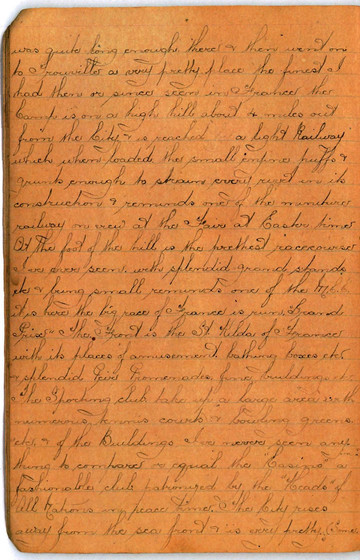 was quite long enough there & then went on
to Trouville a very pretty place the finest I
had then or since seen in France the
Camp is on a high hill about 4 miles out
from the City & is reached by a light Railway
which when loaded the small engine puffs &
grunts enough to strain every rivet in its
construction & reminds one of the miniture
railway on view at the Fair at Easter time
At the foot of the hill is the prettiest racecourse
I've ever seen with splendid grand stands
etc & being small reminds one of the
it is here the big race of France is run "Grand
Prix" The Front is the St Kilda of France
with its places of amusement bathing boxes etc
& splendid Pier Promenades, fine buildings etc
The Sporting club take up a large area with
numerous tennis courts & bowling greens
etc, & of the Buildings I've never seen any
thing to compare or equal the "Casino" a
fashionable club patronised by the "Heads" of
All Nations in peace time, & The City rises
away from the sea front & is very pretty